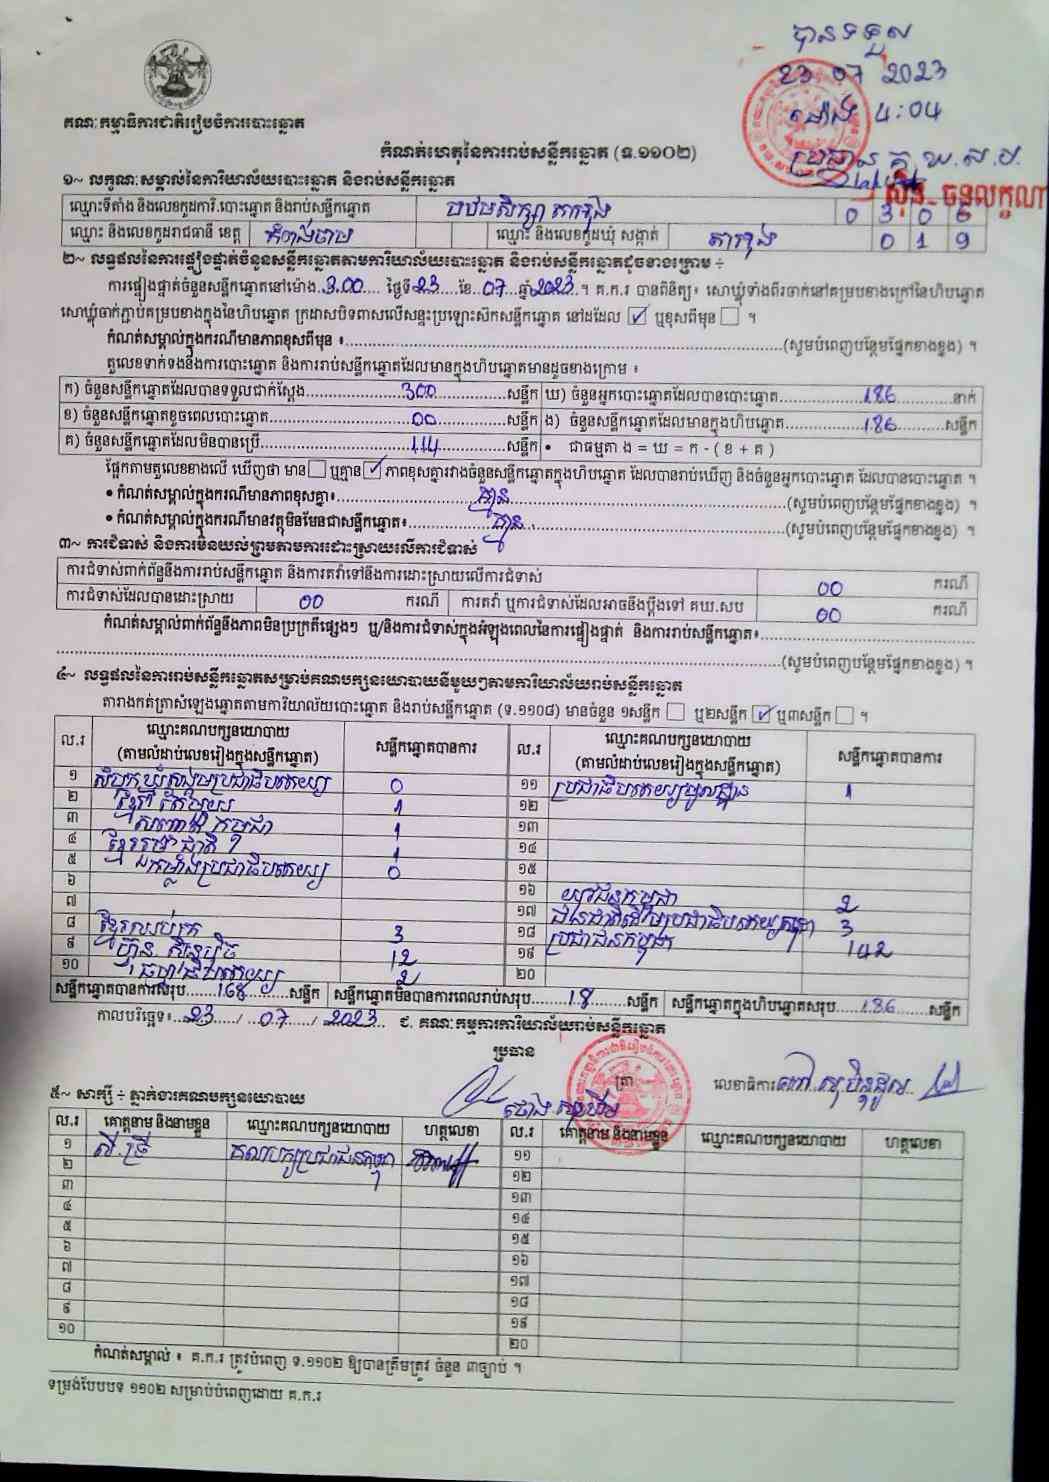 បានទទួល
23 07 2023
ម៉ោង 4:04
គណៈកម្មាធិការជាតិរៀបចំការបោះឆ្នោត
កំណត់ហេតុនៃការរាប់សន្លឹកឆ្នោត (ទ.១១០២)
១~ លក្ខណៈសម្គាល់នៃការិយាល័យបោះឆ្នោត និងរាប់សន្លឹកឆ្នោត
ឈ្មោះទីតាំង និងលេខកូដការិ.បោះឆ្នោត និងរាប់សន្លឹកឆ្នោត បឋមសិក្សា 0 3 0
ឈ្មោះ និងលេខកូដរាជធានី ខេត្ត កំពង់ចាម ឈ្មោះ និងលេខកូដឃុំ សង្កាត់ 0 1 9
២~ លទ្ធផលនៃការផ្ទៀងផ្ទាត់ចំនួនសន្លឹកឆ្នោតតាមការិយាល័យបោះឆ្នោត និងរាប់សន្លឹកឆ្នោតដូចខាងក្រោម ÷
ការផ្ទៀងផ្ទាត់ចំនួនសន្លឹកឆ្នោតនៅម៉ោង 3.00 ថ្ងៃទី 23 ខែ 07 ឆ្នាំ 2023 ។ គ.ក.រ បានពិនិត្យ៖ សោឃ្លុំទាំងពីរចាក់នៅគម្របខាងក្រៅនៃហិបឆ្នោត
សោឃ្លុំចាក់ភ្ជាប់គម្របខាងក្នុងនៃហិបឆ្នោត ក្រដាសបិទពាសលើសន្ទះប្រឡោះស៊កសន្លឹកឆ្នោត នៅដដែល ☑ ឬខុសពីមុន ☐ ។
កំណត់សម្គាល់ក្នុងករណីមានភាពខុសពីមុន ៖ (សូមបំពេញបន្ថែមផ្នែកខាងខ្នង) ។
តួលេខទាក់ទងនឹងការបោះឆ្នោត និងការរាប់សន្លឹកឆ្នោតដែលមានក្នុងហិបឆ្នោតមានដូចខាងក្រោម ៖
ក) ចំនួនសន្លឹកឆ្នោតដែលបានទទួលជាក់ស្តែង 300 សន្លឹក ឃ) ចំនួនអ្នកបោះឆ្នោតដែលបានបោះឆ្នោត 186 នាក់
ខ) ចំនួនសន្លឹកឆ្នោតខូចពេលបោះឆ្នោត 00 សន្លឹក ង) ចំនួនសន្លឹកឆ្នោតដែលមានក្នុងហិបឆ្នោត 186 សន្លឹក
គ) ចំនួនសន្លឹកឆ្នោតដែលមិនបានប្រើ 114 សន្លឹក • ជាធម្មតា ង = ឃ = ក - ( ខ + គ )
ផ្អែកតាមតួលេខខាងលើ ឃើញថា មាន ☐ ឬគ្មាន ☑ ភាពខុសគ្នារវាងចំនួនសន្លឹកឆ្នោតក្នុងហិបឆ្នោត ដែលបានរាប់ឃើញ និងចំនួនអ្នកបោះឆ្នោត ដែលបានបោះឆ្នោត ។
• កំណត់សម្គាល់ក្នុងករណីមានភាពខុសគ្នា៖ គ្មាន (សូមបំពេញបន្ថែមផ្នែកខាងខ្នង) ។
• កំណត់សម្គាល់ក្នុងករណីមានវត្ថុមិនមែនជាសន្លឹកឆ្នោត៖ គ្មាន (សូមបំពេញបន្ថែមផ្នែកខាងខ្នង) ។
៣~ ការជំទាស់ និងការមិនយល់ព្រមតាមការដោះស្រាយលើការជំទាស់
ការជំទាស់ពាក់ព័ន្ធនឹងការរាប់សន្លឹកឆ្នោត និងការតវ៉ាទៅនឹងការដោះស្រាយលើការជំទាស់ 00 ករណី
ការជំទាស់ដែលបានដោះស្រាយ 00 ករណី ការតវ៉ា ឬការជំទាស់ដែលអាចនឹងប្តឹងទៅ គឃ.សប 00 ករណី
កំណត់សម្គាល់ពាក់ព័ន្ធនឹងភាពមិនប្រក្រតីផ្សេងៗ ឬ/និងការជំទាស់ក្នុងអំឡុងពេលនៃការផ្ទៀងផ្ទាត់ និងការរាប់សន្លឹកឆ្នោត៖
(សូមបំពេញបន្ថែមផ្នែកខាងខ្នង) ។
៤~ លទ្ធផលនៃការរាប់សន្លឹកឆ្នោតសម្រាប់គណបក្សនយោបាយនីមួយៗតាមការិយាល័យរាប់សន្លឹកឆ្នោត
តារាងកត់ត្រាសំឡេងឆ្នោតតាមការិយាល័យបោះឆ្នោត និងរាប់សន្លឹកឆ្នោត (ទ.១១០៨) មានចំនួន ១សន្លឹក ☐ ឬ២សន្លឹក ☑ ឬ៣សន្លឹក ☐ ។
ល.រ ឈ្មោះគណបក្សនយោបាយ (តាមលំដាប់លេខរៀងក្នុងសន្លឹកឆ្នោត) សន្លឹកឆ្នោតបានការ ល.រ ឈ្មោះគណបក្សនយោបាយ (តាមលំដាប់លេខរៀងក្នុងសន្លឹកឆ្នោត) សន្លឹកឆ្នោតបានការ
១ សំបុកឃ្មុំសង្គមប្រជាធិបតេយ្យ 0 ១១ ប្រជាធិបតេយ្យមូលដ្ឋាន 1
២ ខ្មែរតែមួយ 1 ១២
៣ កម្ពុជា 1 ១៣
៤ ខ្មែររួបរួមជាតិ 1 ១៤
៥ កម្លាំងប្រជាធិបតេយ្យ 0 ១៥
៦ ១៦ យុវជនកម្ពុជា 2
៧ ១៧ ជនជាតិដើមប្រជាធិបតេយ្យកម្ពុជា 3
៨ ខ្មែរឈប់ក្រ 3 ១៨ ប្រជាជនកម្ពុជា 142
៩ ហ៊្វុនស៊ិនប៉ិច 12 ១៩
១០ ធម្មាធិបតេយ្យ 2 ២០
សន្លឹកឆ្នោតបានការសរុប 168 សន្លឹក សន្លឹកឆ្នោតមិនបានការពេលរាប់សរុប 18 សន្លឹក សន្លឹកឆ្នោតក្នុងហិបឆ្នោតសរុប 186 សន្លឹក
កាលបរិច្ឆេទ៖ 23 / 07 / 2023 ជ. គណៈកម្មការការិយាល័យរាប់សន្លឹកឆ្នោត
ប្រធាន ត្រា លេខាធិការ
៥~ សាក្សី ÷ ភ្នាក់ងារគណបក្សនយោបាយ
ល.រ គោត្តនាម និងនាមខ្លួន ឈ្មោះគណបក្សនយោបាយ ហត្ថលេខា ល.រ គោត្តនាម និងនាមខ្លួន ឈ្មោះគណបក្សនយោបាយ ហត្ថលេខា
១ គណបក្សប្រជាជនកម្ពុជា ១១
២ ១២
៣ ១៣
៤ ១៤
៥ ១៥
៦ ១៦
៧ ១៧
៨ ១៨
៩ ១៩
១០ ២០
កំណត់សម្គាល់ ៖ គ.ក.រ ត្រូវបំពេញ ទ.១១០២ ឱ្យបានត្រឹមត្រូវ ចំនួន ៣ច្បាប់ ។
ទម្រង់បែបបទ ១១០២ សម្រាប់បំពេញដោយ គ.ក.រ